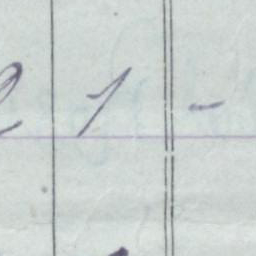 2 1 -